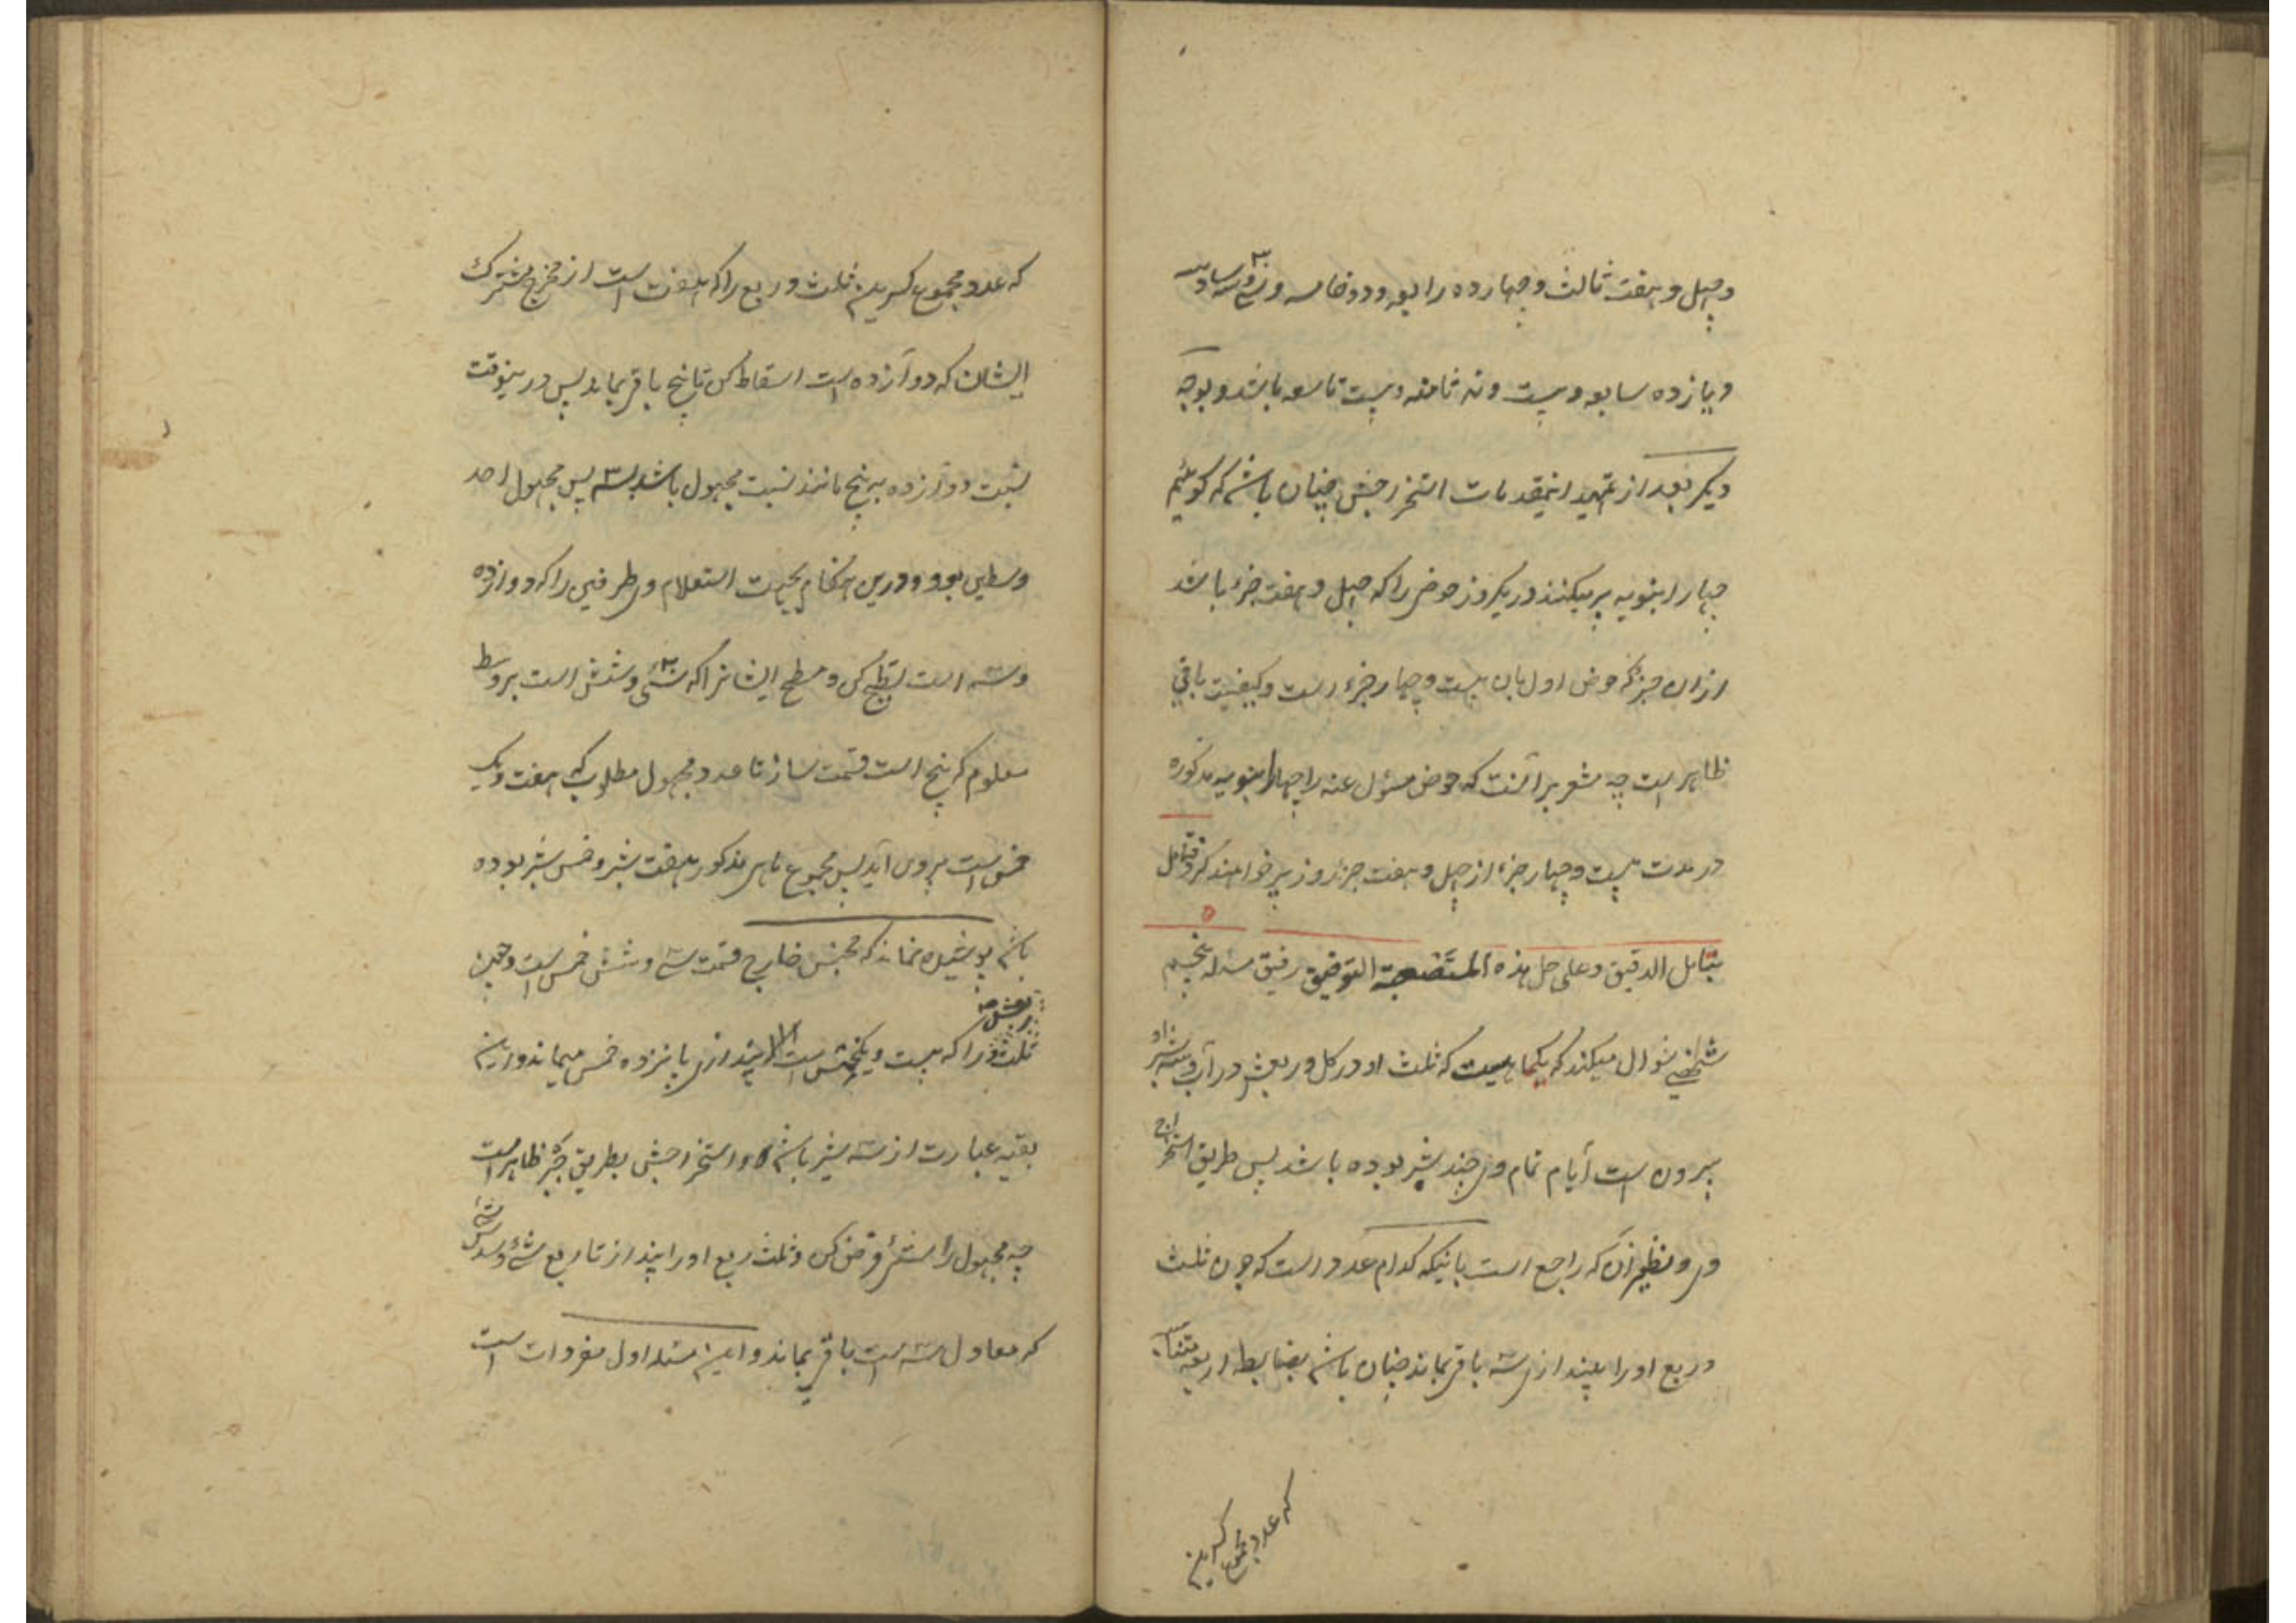 وچهل و هفت ثالث و چهارده رابعه و دو خامسه و سی و سه سادسه
و یازده سابعه و بیست و نه ثامنه و بیست تاسعه باشد و بوجه
دیگر بعد از تمهید اینمقدمات استخراجش چنان باشد که گوئیم
چهار انبوبه پر میکنند در یکروز حوضی را که چهل و هفت جزء باشد
ازان جزء که حوض اول بان بیست و چهار جزء است و کیفیت باقی
ظاهر است چه مشعر بر آنست که حوض مسئول عنه را چهار انبوبه مذکوره
در مدت بیست و چهار جزء از چهل و هفت جزء روز پر خواهند کرد فتامل
بتامل الدقیق و علی حل هذه التوفیق رفیق مسئله پنجم
شخصی سؤال میکند که یکماهیست که ثلث او در گل و ربعش در آب و سه شبر ازو
بیرون است آیا م تمام وی چند شبر بوده باشد پس طریق استخراج
وی و نظیر آن که راجع است باینکه کدام عدد است که چون ثلث
و ربع او را بیندازی سه باقی بماند چنان باشد بضابط اربعه متناسبه
که عدد مجموع کسرین
که عدد مجموع کسرین ثلث و ربع را که هفت است از مخرج مشترک
ایشان که دوآزده است اسقاط کن تا پنج باقی بماند پس درینوقت
نسبت دوآزده به پنج مانند نسبت مجهول باشد بسه پس مجهول احد
وسطین بود و درین هنگام بجهت استعلام وی طرفین را که دوازده
و سه است مسطح کن و مسطح ایشانرا که سی و شش است بر وسط
معلوم که پنج است قسمت ساز تا عدد مجهول مطلوب که هفت و یک
خمس است بیرون آید پس مجموع ماهی مذکور هفت شبر و خمس شبر بوده
باشد پوشیده نماند که مجنس خارج قسمت سی و شش خمس است و چون
ثلث و ربعش را که بیست و یکخمس است بیندازی پانزده خمس میماند و این
بقیه عبارت از سه شبر باشد و استخراجش بطریق جبر ظاهر است
چه مجهول را شئ فرض کن و ثلث و ربع او را بینداز تا ربع شئ و سدس شئ
که معادل سه است باقی بماند و این مسئله اول مفردات است